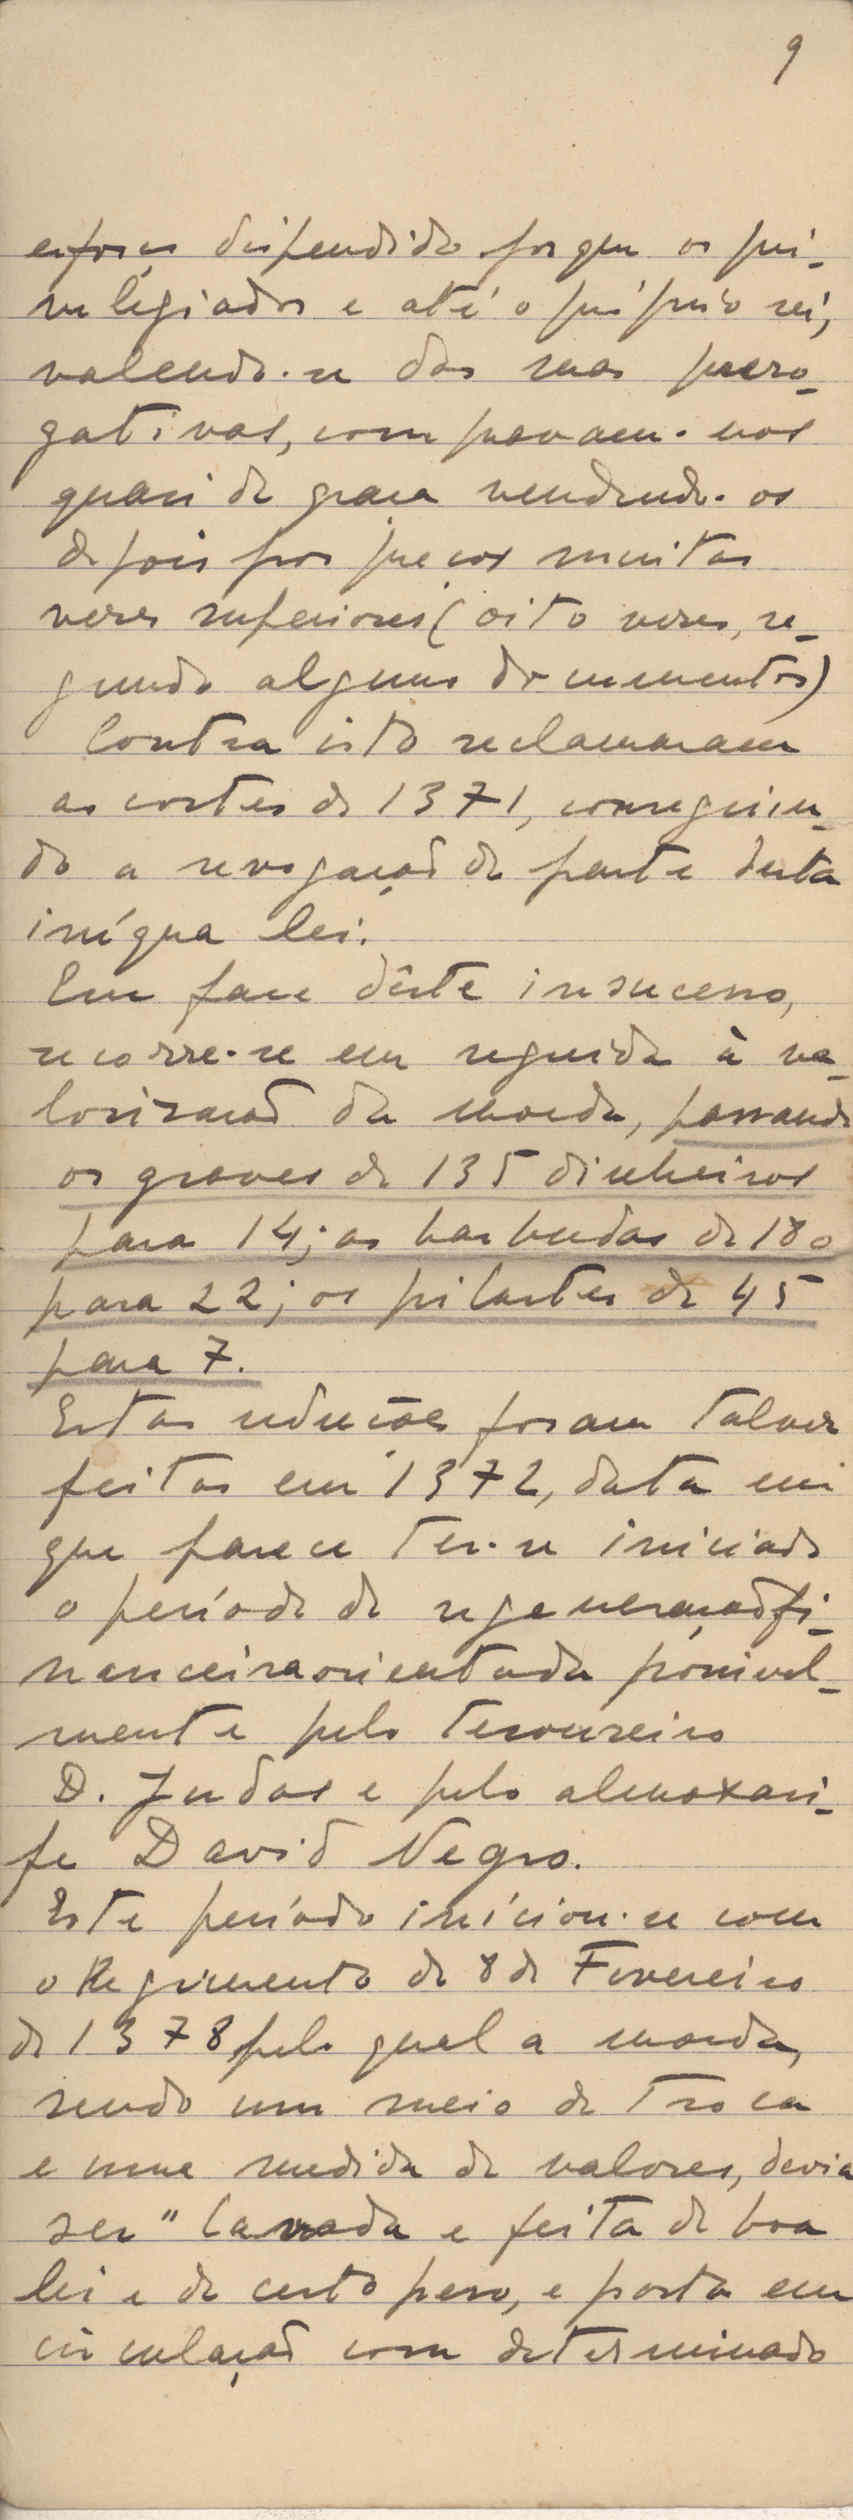 9
esforço dispendido porque os pri-
velegiados e até o próprio rei,
valendo-se das suas prero-
gativas, compravam-nos
quasi de graça vendendo-os
depois por preços muitas
vezes superiores (oito vezes, se-
gundo alguns documentos)
Contra isto reclamaram
as cortes de 1371, conseguin-
do a revogação de parte desta
iníqua lei.
Em face dêste insucesso,
recorre-se em seguida à va-
lorização da moeda, passando
os graves de 135 dinheiros
para 14; as barbudas de 180
para 22; os pilartes de 45
para 7.
Estas reduções foram talvez
feitas em 1372, data em
que parece ter-se iniciado
o período de regeneração fi-
nanceira orientada possivel-
mente pelo tesoureiro
D. Judas e pelo almoxari-
fe David Negro.
Este período iniciou-se com
o Regimento de 8 de Fevereiro
de 1378 pelo qual a moeda,
sendo um meio de troca
e uma medida de valores, devia
ser "lavrada e feita de boa
lei e de certo peso, e posta em
circulação com determinado